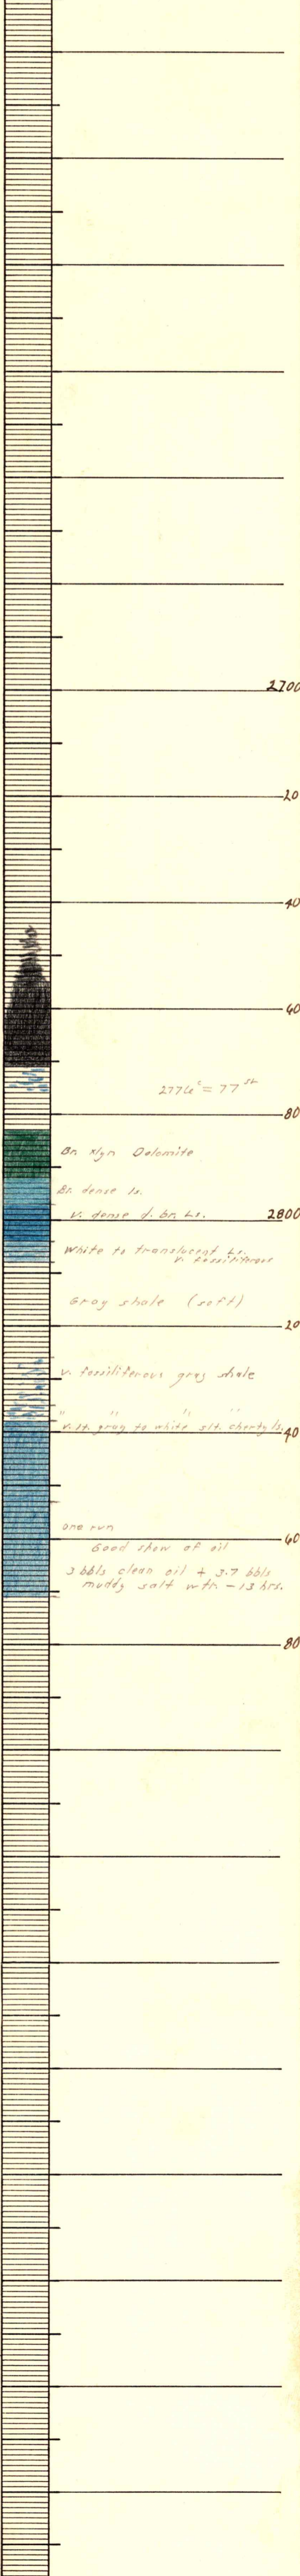 2700
20
40
60
80
Br. xlyn Dolomite
Br. dense ls.
v. dense d. br. Ls.
2800
White to translucent Ls.
v. fossiliferous
Gray shale (soft)
20
v. fossiliferous gray shale
" " " "
v. lt. gray to white slt. cherty ls.
40
one run
60
Good show of oil
3 bbls clean oil + 3.7 bbls
muddy salt wtr. - 13 hrs.
80